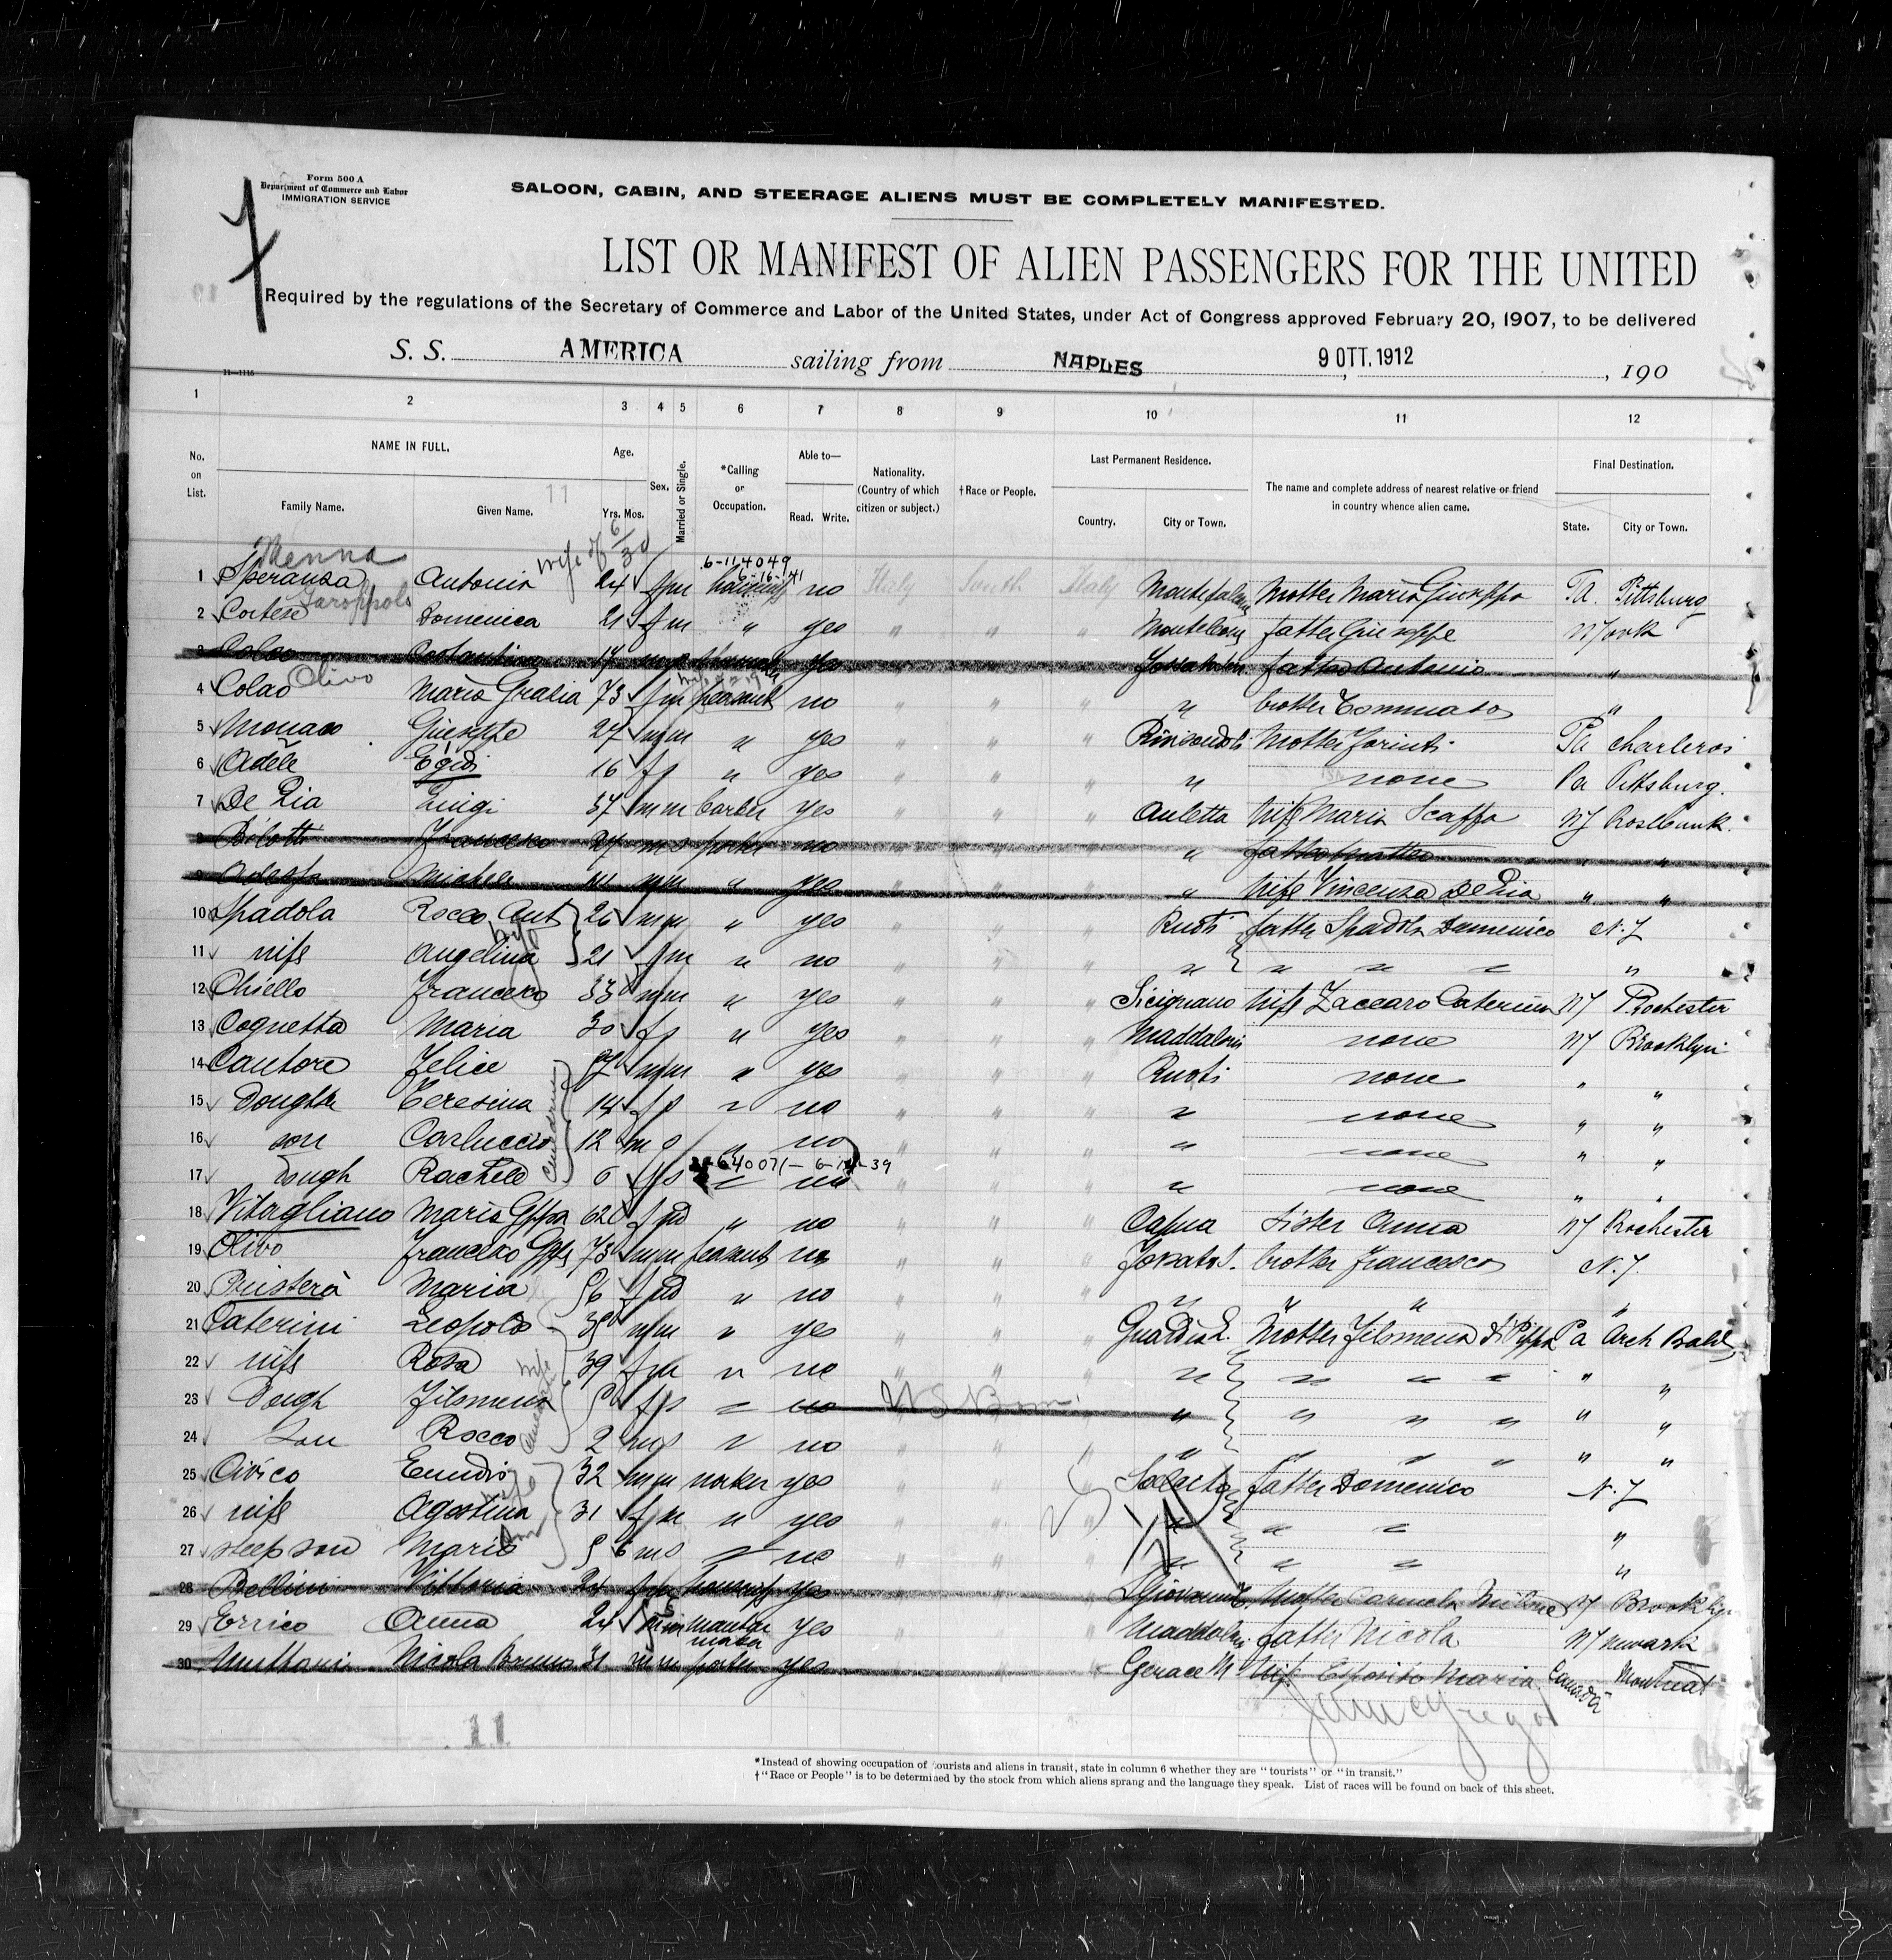 Form 500 A
Department of Commerce and Labor
IMMIGRATION SERVICE
SALOON, CABIN, AND STEERAGE ALIENS MUST BE COMPLETELY MANIFESTED.
LIST OR MANIFEST OF ALIEN PASSENGERS FOR THE UNITED
Required by the regulations of the Secretary of Commerce and Labor of the United States, under Act of Congress approved February 20, 1907, to be delivered
S. S. AMERICA sailing from NAPLES 9 OTT. 1912 , 190
11—1115
1 2 3 4 5 6 7 8 9 10 11 12
No. on List. NAME IN FULL. Family Name. Given Name. Age. Yrs. Mos. Sex. Married or Single. *Calling or Occupation. Able to— Read. Write. Nationality. (Country of which citizen or subject.) †Race or People. Last Permanent Residence. Country. City or Town. The name and complete address of nearest relative or friend in country whence alien came. Final Destination. State. City or Town.
11
Menna wife of 6/30 6-114049
1 Speranza Antonia 24 f m no Italy South Italy Mother Maria Giuseppa Pa. Pittsburg
2 Cortese Domenica 21 f m " yes " " " Monteleone father Giuseppe N York
3 Colao Costantino 17 m s yes " " " father Antonio "
Olivo
4 Colao Maria Grazia 73 f m peasant no " " " " brother Tommaso "
5 Monaco Giuseppe 27 m m " yes " " " Mother Pa Charleroi
6 Adele Egidi 16 f s " yes " " " " none Pa Pittsburg.
7 De Lia Luigi 37 m m barber yes " " " Auletta wife Maria Scaffa NY Rosebank.
8 Francesco 27 m s porter no " " " " father Matteo " "
9 Michele m m " yes " " " " wife Vincenza De Lia " "
10 Spadola Rocco Ant 26 m m " yes " " " Ruoti father Spadola Domenico N.J
11 wife Angelina 21 f m " no " " " " " " " "
12 Chiello Francesco 33 m m " yes " " " Sicignano wife Zaccaro Caterina NY Rochester
13 Cognetta Maria 30 f s " yes " " " Maddaloni none NY Brooklyn
14 Cantore Felice m m " yes " " " Ruoti none " "
15 Doughter Teresina 14 f s " no " " " " none " "
16 son Carluccio 12 m s " no " " " " none " "
17 Dough Rachele 6 f s " no " " " " none " "
18 Vitagliano Maria Gppa 62 f wd " no " " " Capua Sister Anna NY Rochester
19 Olivo Francesco 73 m m peasant no " " " brother Francesco N.J.
20 Maria 56 f wd " no " " " " " " "
21 Caterini Leopoldo m m " yes " " " Guardia L. Mother Filomena Pa Arch Bald
22 wife Rosa 39 f m " no " " " " " " " " "
23 Dough Filomena f s " no US Born " " " " " "
24 Son Rocco 2 m s " no " " " " " " " " "
25 Civico Emidio 32 m m worker yes " " " father Domenico N.J
26 wife Agostina 31 f m " yes " " " " " " "
27 steep son Mario 5 6 m s " no " " " " " " "
28 Bellini Vittoria 24 f yes " " " Mother Carmela NY Brooklyn
29 Errico Anna 24 yes " " " Maddaloni father Nicola NJ Newark
30 Nicola Bruno 31 m m porter yes " " " Gerace M. wife Esposito Maria Canada Montreal
11
*Instead of showing occupation of tourists and aliens in transit, state in column 6 whether they are "tourists" or "in transit."
†"Race or People" is to be determined by the stock from which aliens sprang and the language they speak. List of races will be found on back of this sheet.